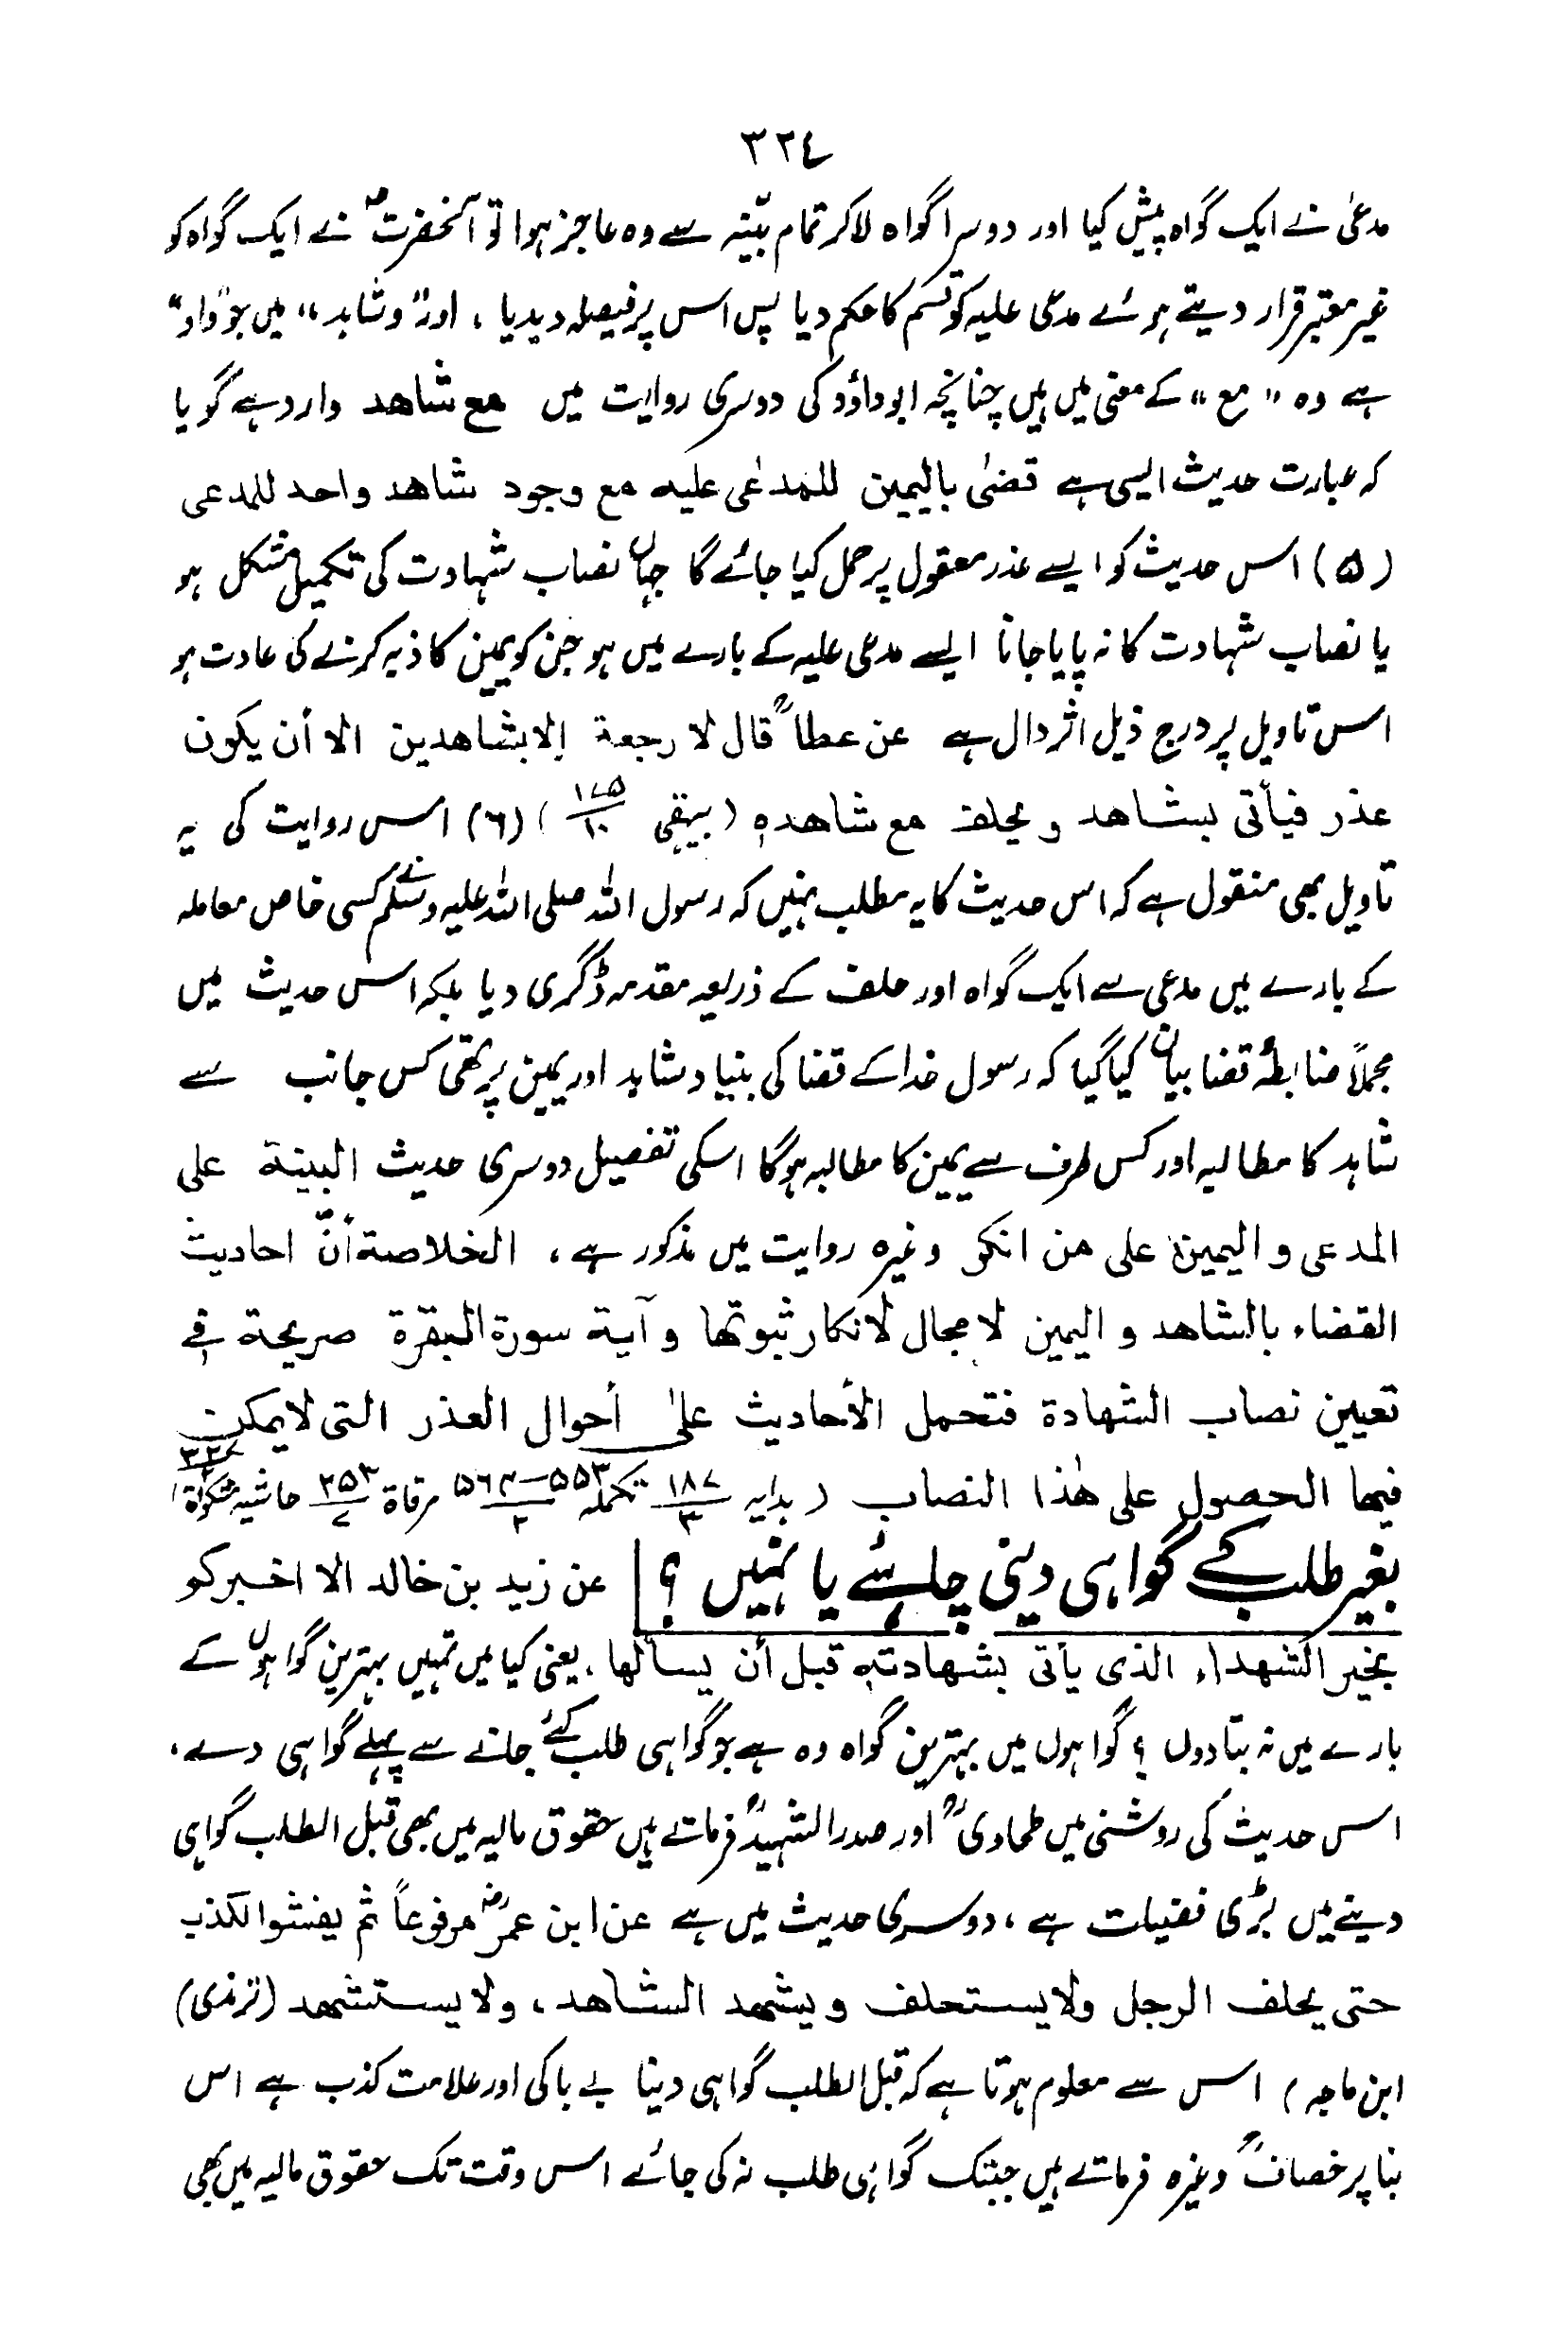 ٣٢٤
مدعیٰ نے ایک گواہ پیش کیا اور دوسرا گواہ لاکر تمام بیّنہ سے وہ عاجز ہوا تو آنحضرتؐ نے ایک گواہ کو
غیر معتبر قرار دیتے ہوئے مدعی علیہ کو قسم کا حکم دیا پس اس پر فیصلہ دیدیا ، اور "وشاہد" میں جو "واو"
ہے وہ "مع" کے معنی میں ہیں چنانچہ ابوداؤد کی دوسری روایت میں مع شاھد وارد ہے گویا
کہ عبارت حدیث ایسی ہے قضیٰ بالیمین للمدعٰی علیہ مع وجود شاھد واحد للمدعی
(۵) اس حدیث کو ایسے عذر معقول پر حمل کیا جائے گا جہاں نصاب شہادت کی تکمیل مشکل ہو
یا نصاب شہادت کا نہ پایا جانا ایسے مدعی علیہ کے بارے میں ہو جن کو یمین کاذبہ کرنے کی عادت ہو
اس تاویل پر درج ذیل اثر دال ہے عن عطاءؒ قال لا رجعة إلا بشاھدین الا أن یکون
عذر فیأتی بشاھد ویحلف مع شاھدہ (بیہقی ۱۷۵/۱۰) (٦) اس روایت کی یہ
تاویل بھی منقول ہے کہ اس حدیث کا یہ مطلب نہیں کہ رسول اللہ صلی اللہ علیہ وسلم نے کسی خاص معاملہ
کے بارے میں مدعی سے ایک گواہ اور حلف کے ذریعہ مقدمہ ڈگری دیا بلکہ اس حدیث میں
مجملاً ضابطۂ قضا بیان کیا گیا کہ رسول خدا کے قضا کی بنیاد شاہد اور یمین پر تھی کس جانب سے
شاہد کا مطالبہ اور کس طرف سے یمین کا مطالبہ ہوگا اسکی تفصیل دوسری حدیث البینة علی
المدعی والیمین علی من انکر وغیرہ روایت میں مذکور ہے ، الخلاصة أنّ احادیث
القضاء بالشاھد والیمین لا مجال لانکار ثبوتھا وآیة سورة البقرة صریحة فی
تعیین نصاب الشھادة فتحمل الأحادیث علیٰ أحوال العذر التی لا یمکن
فیھا الحصول علی ھٰذا النصاب (ہدایہ ۱۸۷/۳ تکملہ ۵۵۳-۵۶۳/۲ مرقاة ۲۵۳/۷ حاشیہ مشکوٰة ۳۲۷/۲)
بغیر طلب کے گواہی دینی چاہئے یا نہیں ؟ عن زید بن خالد الا اخبرکو
بخیر الشھداء الذی یأتی بشھادتہ قبل أن یسألھا ، یعنی کیا میں تمہیں بہترین گواہوں کے
بارے میں نہ بتادوں ؟ گواہوں میں بہترین گواہ وہ ہے جو گواہی طلب کئے جانے سے پہلے گواہی دے ،
اس حدیث کی روشنی میں طحاویؒ اور صدر الشہیدؒ فرماتے ہیں حقوق مالیہ میں بھی قبل الطلب گواہی
دینے میں بڑی فضیلت ہے ، دوسری حدیث میں ہے عن ابن عمرؓ مرفوعاً ثم یفشوا لکذب
حتی یحلف الرجل ولا یستحلف ویشھد الشاھد ، ولا یستشھد (ترمذی)
ابن ماجہ) اس سے معلوم ہوتا ہے کہ قبل الطلب گواہی دینا بے باکی اور علامت کذب ہے اس
بنا پر خصافؒ وغیرہ فرماتے ہیں جبتک گواہی طلب نہ کی جائے اس وقت تک حقوق مالیہ میں بھی